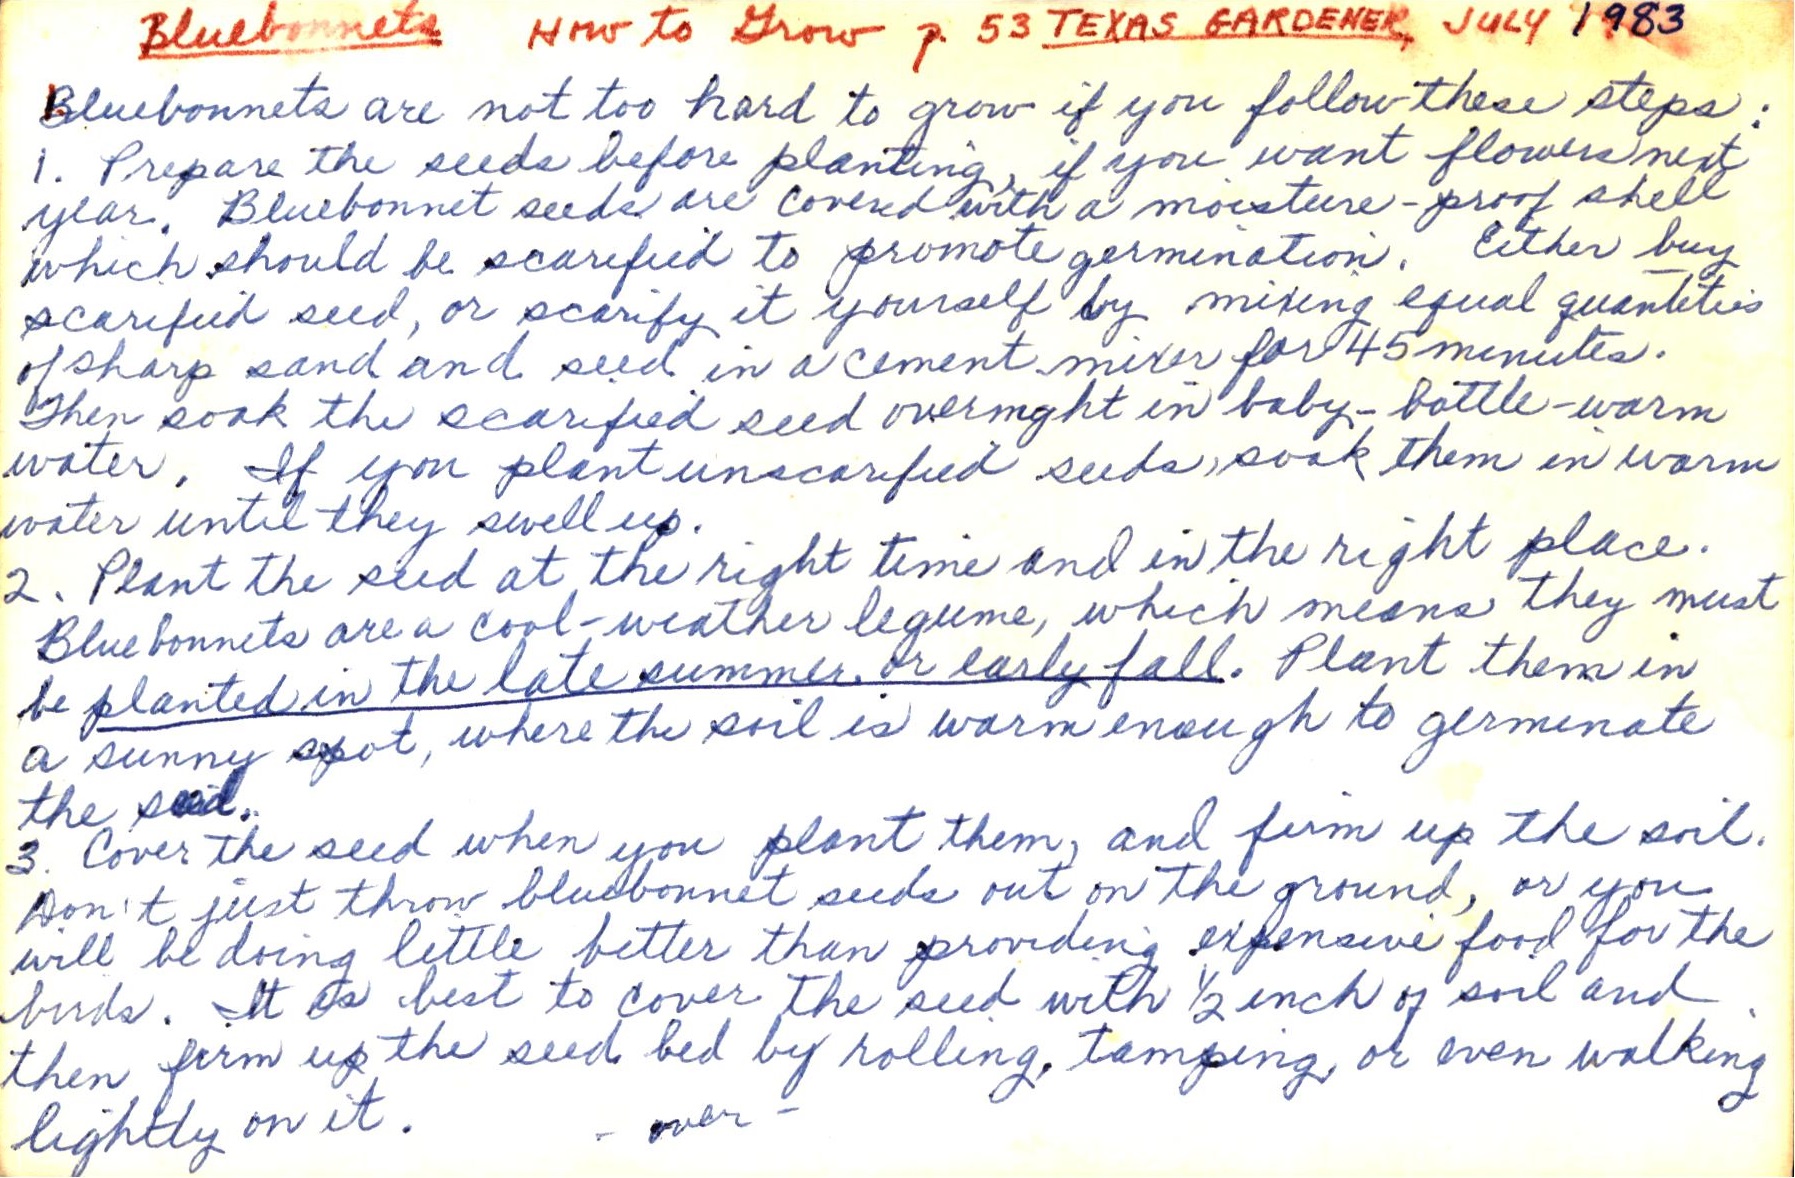 Bluebonnets How to Grow p. 53 TEXAS GARDENER, JULY 1983
Bluebonnets are not too hard to grow if you follow these steps:
1. Prepare the seeds before planting, if you want flowers next
year. Bluebonnet seeds are covered with a moisture-proof shell
which should be scarified to promote germination. Either buy
scarified seed, or scarify it yourself by mixing equal quantities
of sharp sand and seed in a cement mixer for 45 minutes.
Then soak the scarified seed overnight in baby-bottle-warm
water. If you plant unscarified seeds, soak them in warm
water until they swell up.
2. Plant the seed at the right time and in the right place.
Bluebonnets are a cool-weather legume, which means they must
be planted in the late summer or early fall. Plant them in
a sunny spot, where the soil is warm enough to germinate
the seed.
3. Cover the seed when you plant them, and firm up the soil.
Don't just throw bluebonnet seeds out on the ground, or you
will be doing little better than providing expensive food for the
birds. It is best to cover the seed with 1/2 inch of soil and
then firm up the seed bed by rolling, tamping, or even walking
lightly on it. - over -